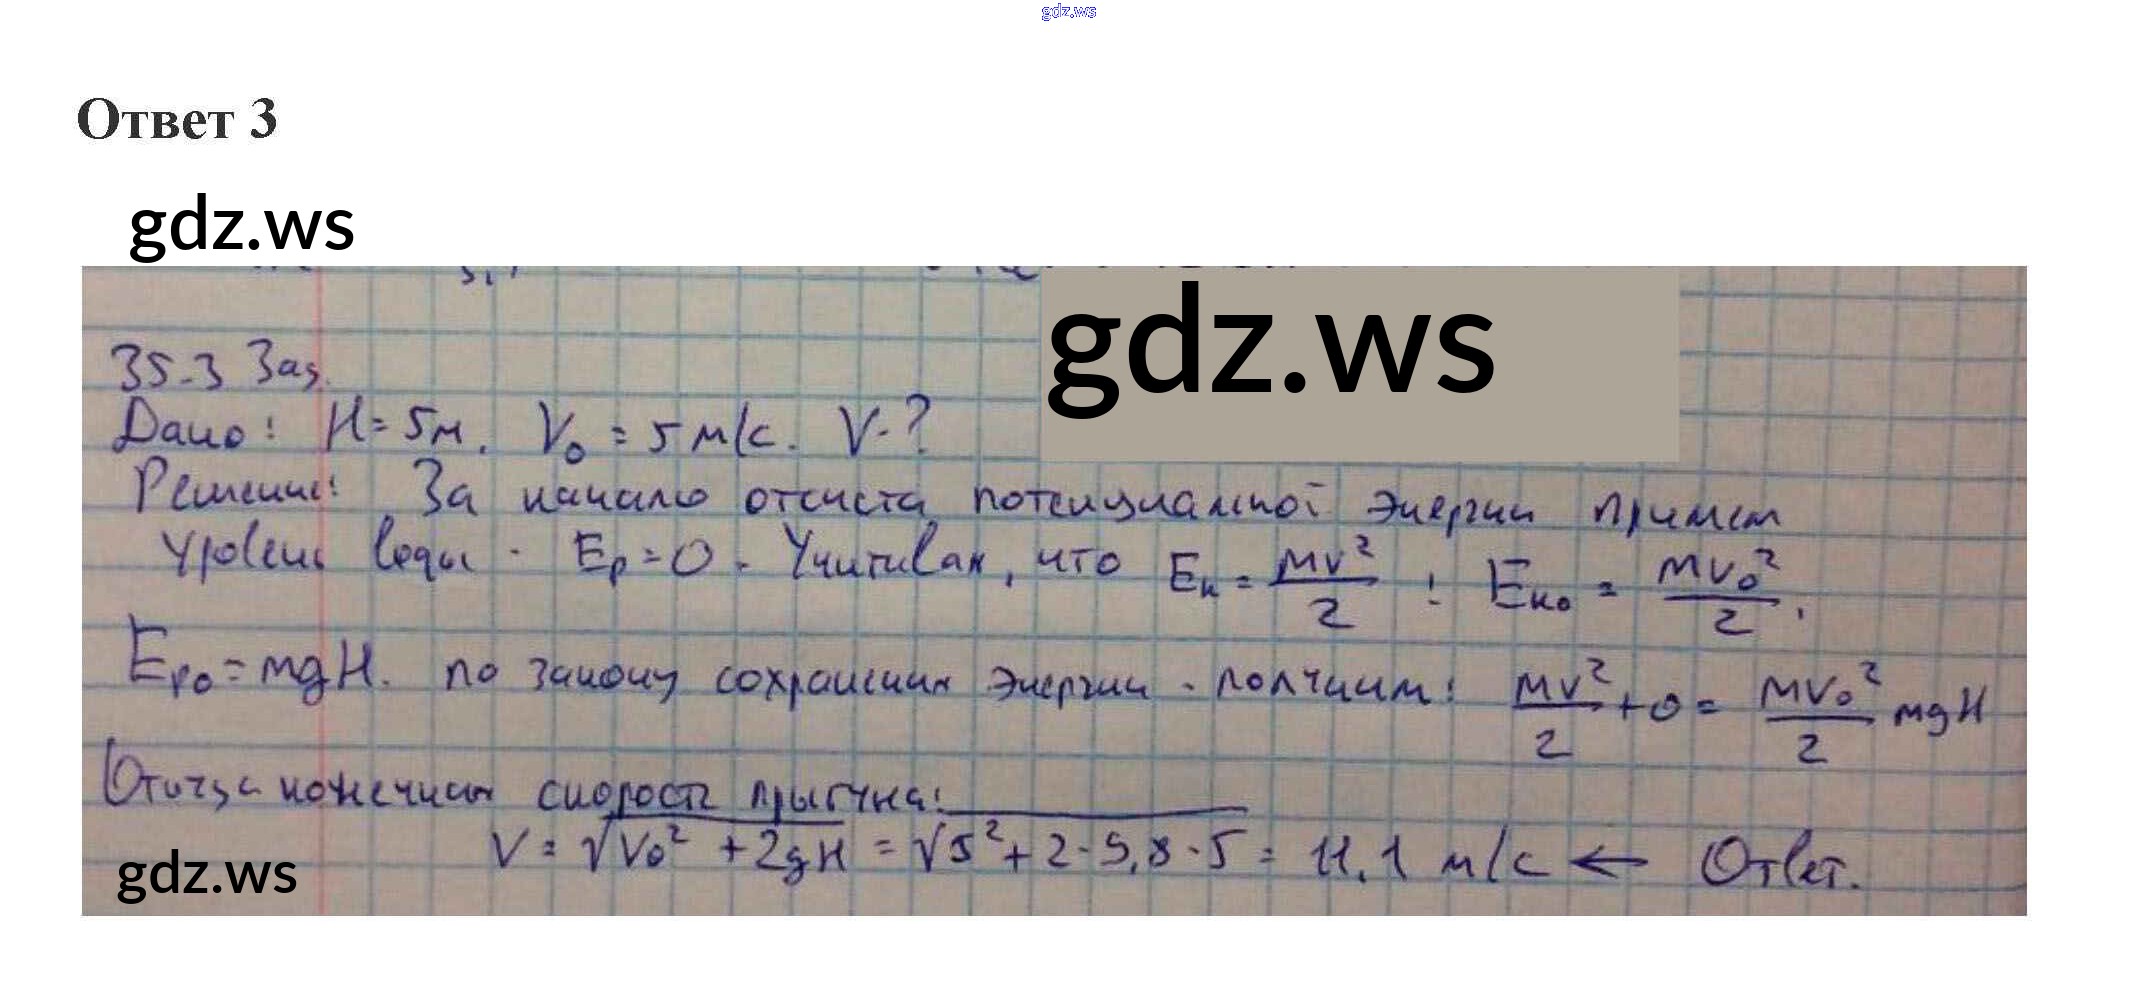 gdz.ws
Ответ 3
gdz.ws
gdz.ws
35-3 Зад.
Дано: H = 5м. V₀ = 5 м/с. V-?
Решение: За начало отсчета потенциальной энергии примем
уровень воды. Eₚ = 0. Учитывая, что Eₖ = mv²/2 ; Eₖ₀ = mv₀²/2 ,
Eₚ₀ = mgH. по закону сохранения энергии. получим: mv²/2 + 0 = mv₀²/2 mgH
Отсюда конечная скорость прыгуна:
V = √V₀² + 2gH = √5² + 2 · 9,8 · 5 = 11,1 м/с ← Ответ.
gdz.ws